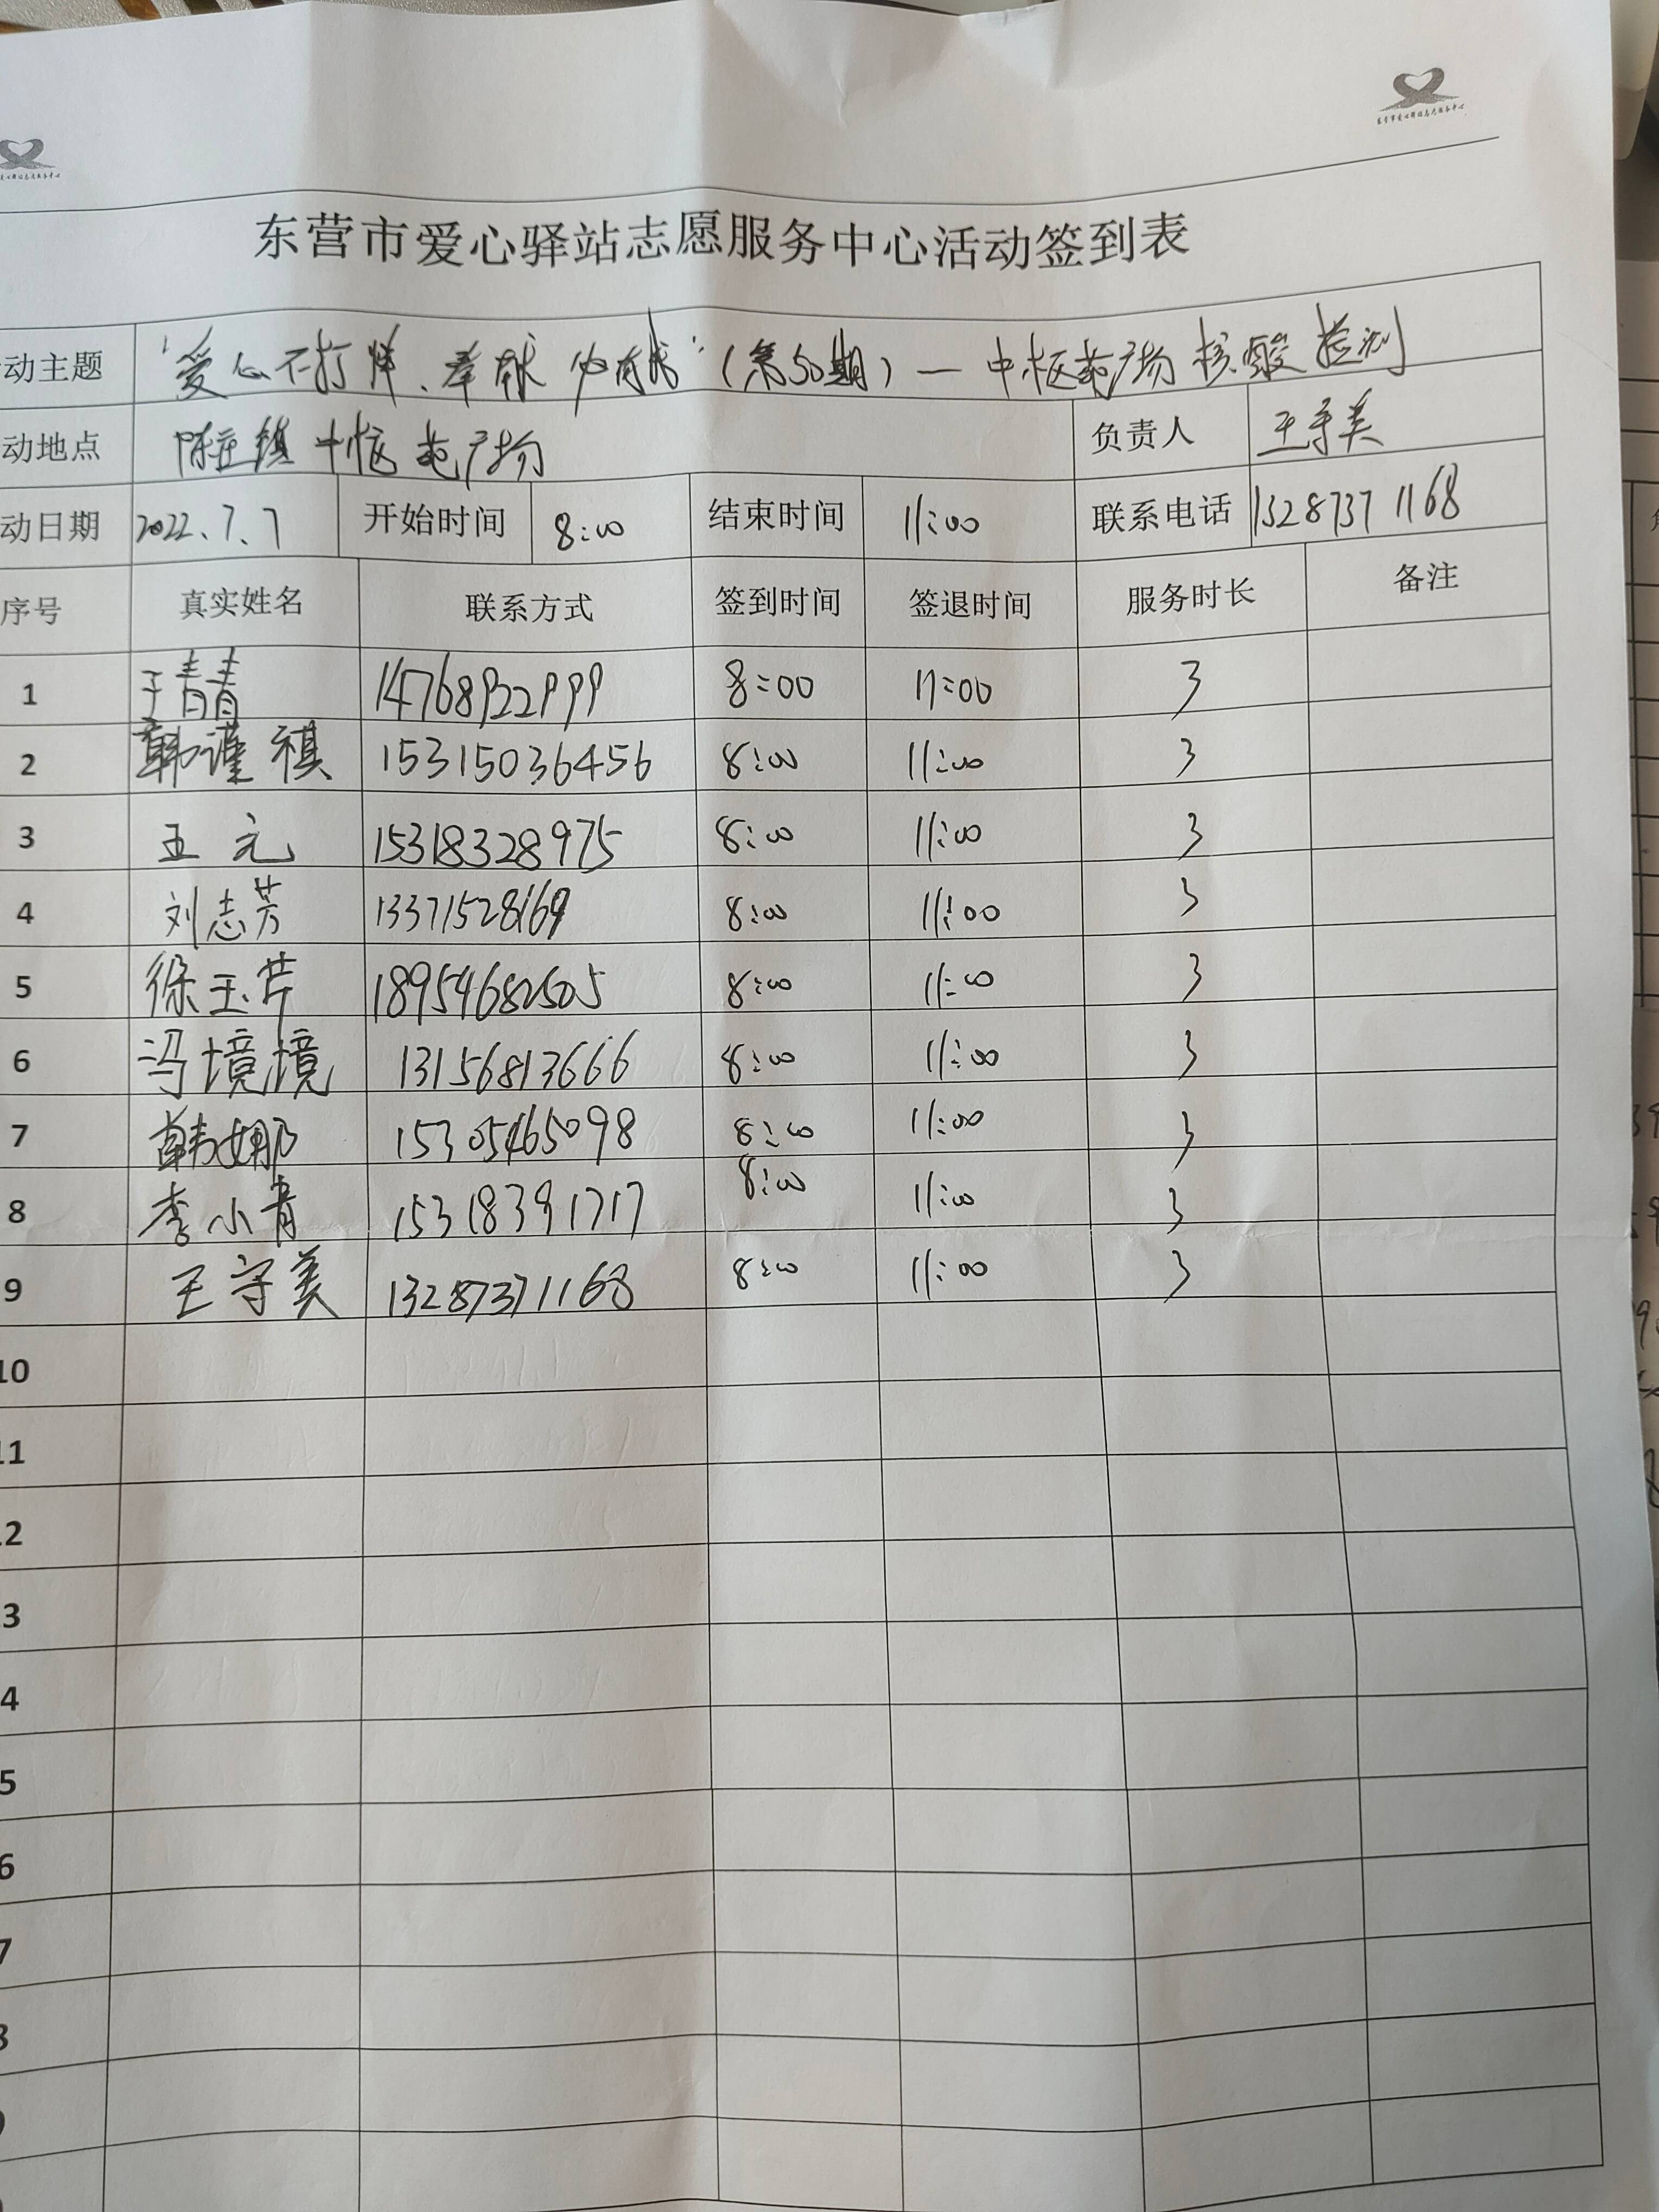 东营市爱心驿站志愿服务中心
东营市爱心驿站志愿服务中心活动签到表
动主题 "爱心不打烊、奉献你我"(第50期)—中心广场核酸检测
动地点 陈庄镇中心广场 负责人 王守美
动日期 2022.7.7 开始时间 8:00 结束时间 11:00 联系电话 13287371168
序号 真实姓名 联系方式 签到时间 签退时间 服务时长 备注
1 于青青 14768922999 8:00 11:00 3
2 韩谨祺 15315036456 8:00 11:00 3
3 王元 15318328975 8:00 11:00 3
4 刘志芳 13371528169 8:00 11:00 3
5 徐玉芹 18954682505 8:00 11:00 3
6 冯境境 13156813666 8:00 11:00 3
7 韩娜 15305465098 8:00 11:00 3
8 李小青 15318391717 8:00 11:00 3
9 王守美 13287371168 8:00 11:00 3
10
11
12
3
4
5
6
7
8